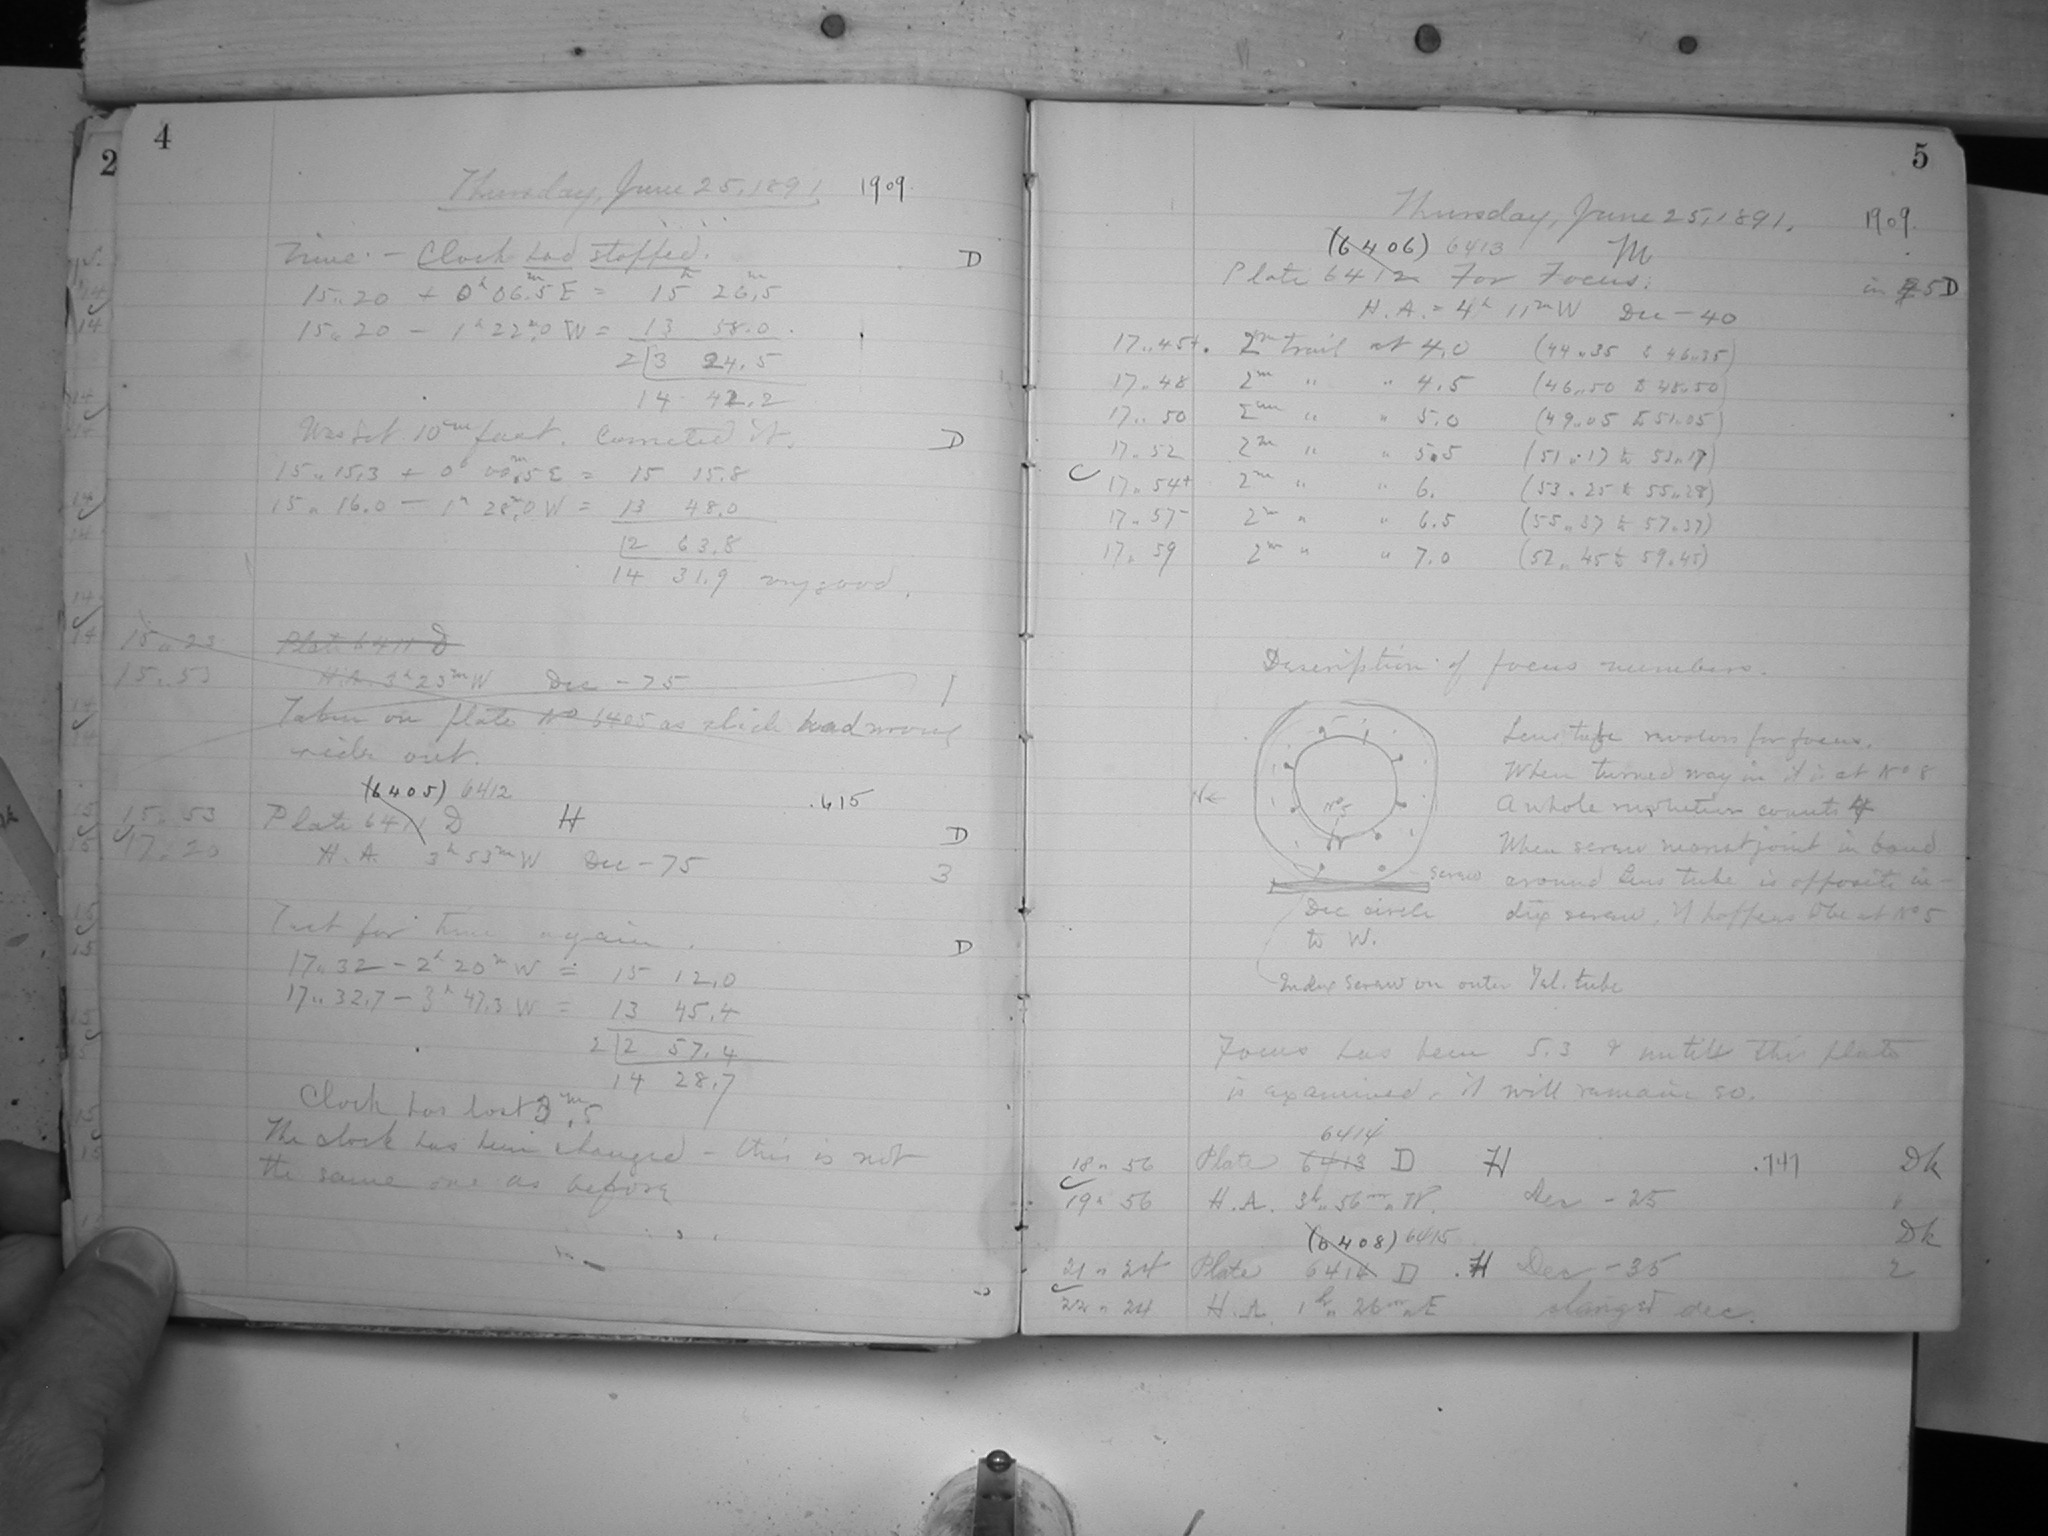 4
2
Thursday, June 25, 1891 1909.
Time. - Clock had stopped. D
15.. 20 + 0h 06.5 E = 15h 26m.5
15.. 20 - 1h 22m.0 W = 13 58.0.
2|3 24.5
14 42.2
Was set 10m fast. Corrected it. D
15.. 15.3 + 0h 00m.5 E = 15 15.8
15.. 16.0 - 1h 28m.0 W = 13 48.0
|2 63.8
14 31.9 very good.
15.. 23 Plate 6411 D
15.. 53 H.A. 3h 23m W Dec -75 1
Taken on plate No 6405 as slide had
out.
(6405) 6412 .615
15.. 53 Plate 6411 D H D
17.. 20 H.A. 3h 53m W Dec -75 3
Test for time again. D
17.. 32 - 2h 20m W = 15 12.0
17.. 32.7 - 3h 47.3 W = 13 45.4
2|2 57.4
14 28.7
Clock has lost 3m.5
The clock has been changed - this is not
the same one as before
5
Thursday, June 25, 1891. 1909.
(6406) 6413 M
Plate 6412 For Focus. in 5 D
H.A. = 4h 11m W Dec -40
17.. 45+. 2m trail at 4.0 (44..35 to 46..35)
17.. 48 2m " " 4.5 (46..50 to 48..50)
17.. 50 2m " " 5.0 (49..05 to 51..05)
17.. 52 2m " " 5.5 (51..17 to 53..17)
17.. 54+ 2m " " 6. (53..25 to 55..28)
17.. 57- 2m " " 6.5 (55..37 to 57..37)
17.. 59 2m " " 7.0 (57..45 to 59..45)
Description of focus numbers.
Lens tube revolves for focus.
When turned way in it is at No 8
A whole revolution counts 4
When screw nearest joint in band
around lens tube is opposite in-
dex screw, it happens to be at No 5
N←
No 5
screw
Dec circle
to W.
Index screw on outer Tel. tube
Focus has been 5.3 & until this plate
is examined, it will remain so.
6414
18.. 56 Plate 6413 D H .747 Dk
19.. 56 H.A. 3h.. 56m.. W. Dec -25 "
(6408) 6415 Dk
21.. 24 Plate 6414 D .H Dec -35 2
22.. 24 H.A. 1h.. 26m.. E changed dec.